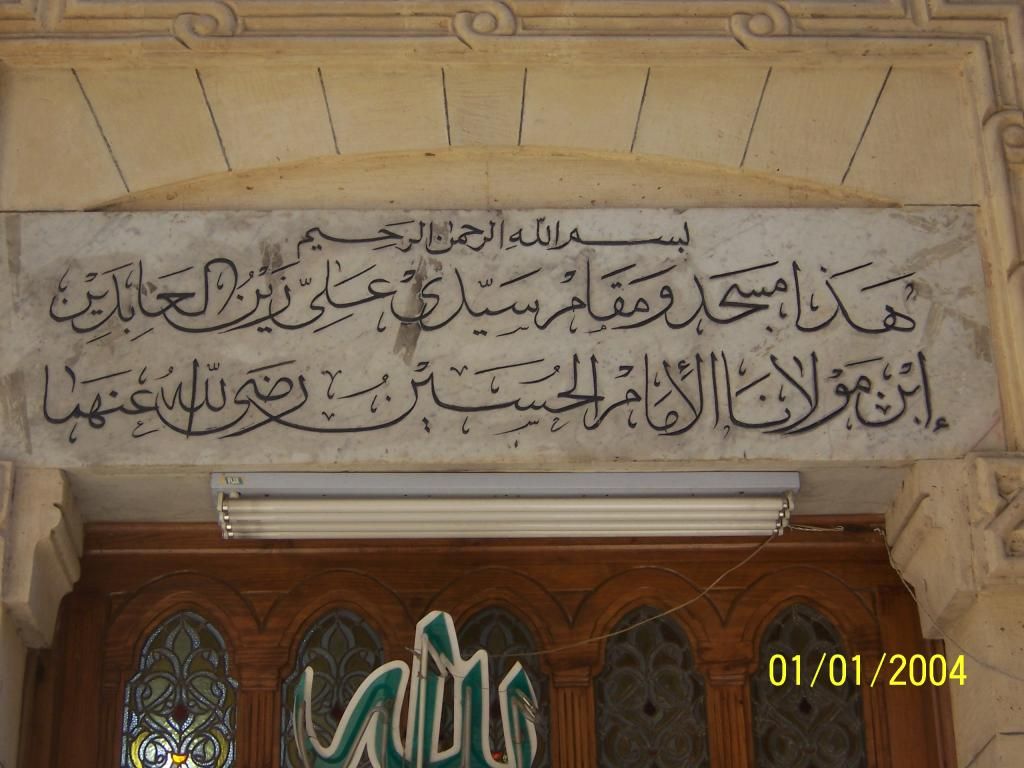 بسم الله الرحمن الرحيم
هَذَا مسجد ومَقَامْ سَيّدىْ عَلىِّ زَيْن العَابِدِيْن
إبْن مَوْلانَا الإمَامْ الحُسَيْن رضَى الله عَنهما
الله
01/01/2004